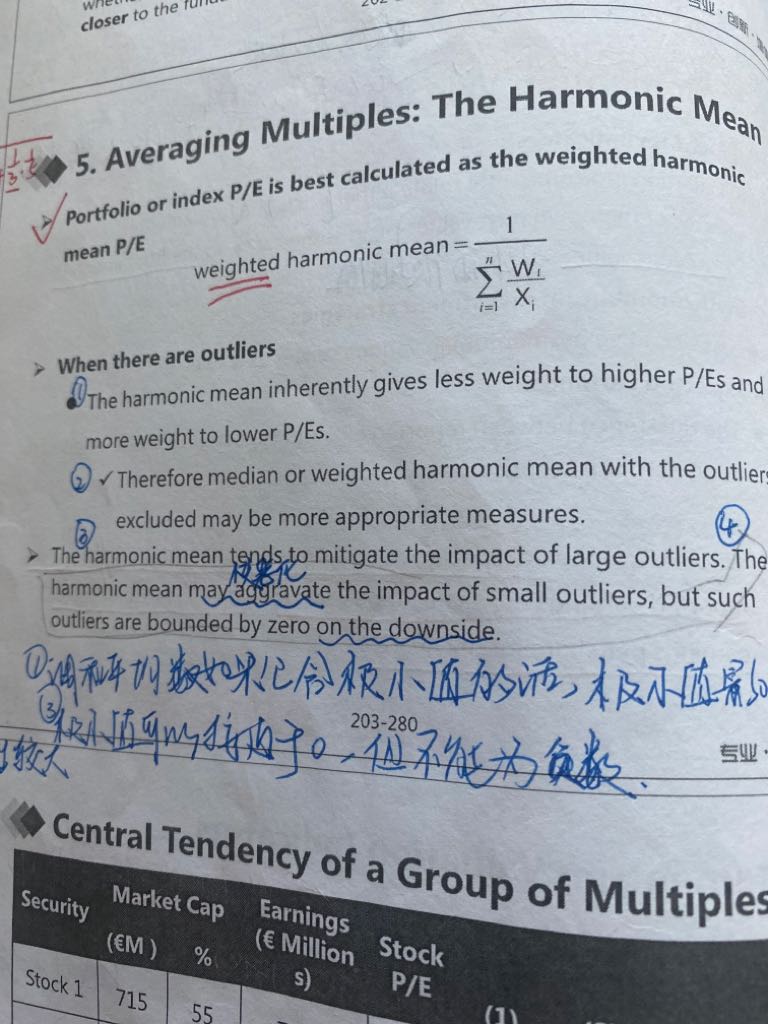 closer to the
专业·创新·
5. Averaging Multiples: The Harmonic Mean
Portfolio or index P/E is best calculated as the weighted harmonic
mean P/E
weighted harmonic mean = 1 / ∑ i=1 n Wi / Xi
➤ When there are outliers
① The harmonic mean inherently gives less weight to higher P/Es and
more weight to lower P/Es.
② ✓ Therefore median or weighted harmonic mean with the outliers
excluded may be more appropriate measures.
③ ④
➤ The harmonic mean tends to mitigate the impact of large outliers. The
恶化
harmonic mean may aggravate the impact of small outliers, but such
outliers are bounded by zero on the downside.
①调和平均数如果包含极小值的话,极小值影
③极小值可以接近于0,但不能为负数.
较大
203-280
专业·
Central Tendency of a Group of Multiples
Security Market Cap Earnings Stock
(€M) % (€ Million P/E
s) (1)
Stock 1 715 55